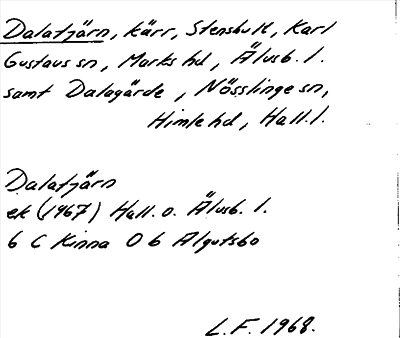 Dalatjärn, kärr, Stenshult, Karl
Gustavs sn, Marks hd, Älvsb. l.
samt Dalagärde, Nösslinge sn,
Himle hd, Hall. l.
Dalatjärn
ek (1967) Hall. o. Älvsb. l.
6 C Kinna 0 b Algutsbo
L.F. 1968.